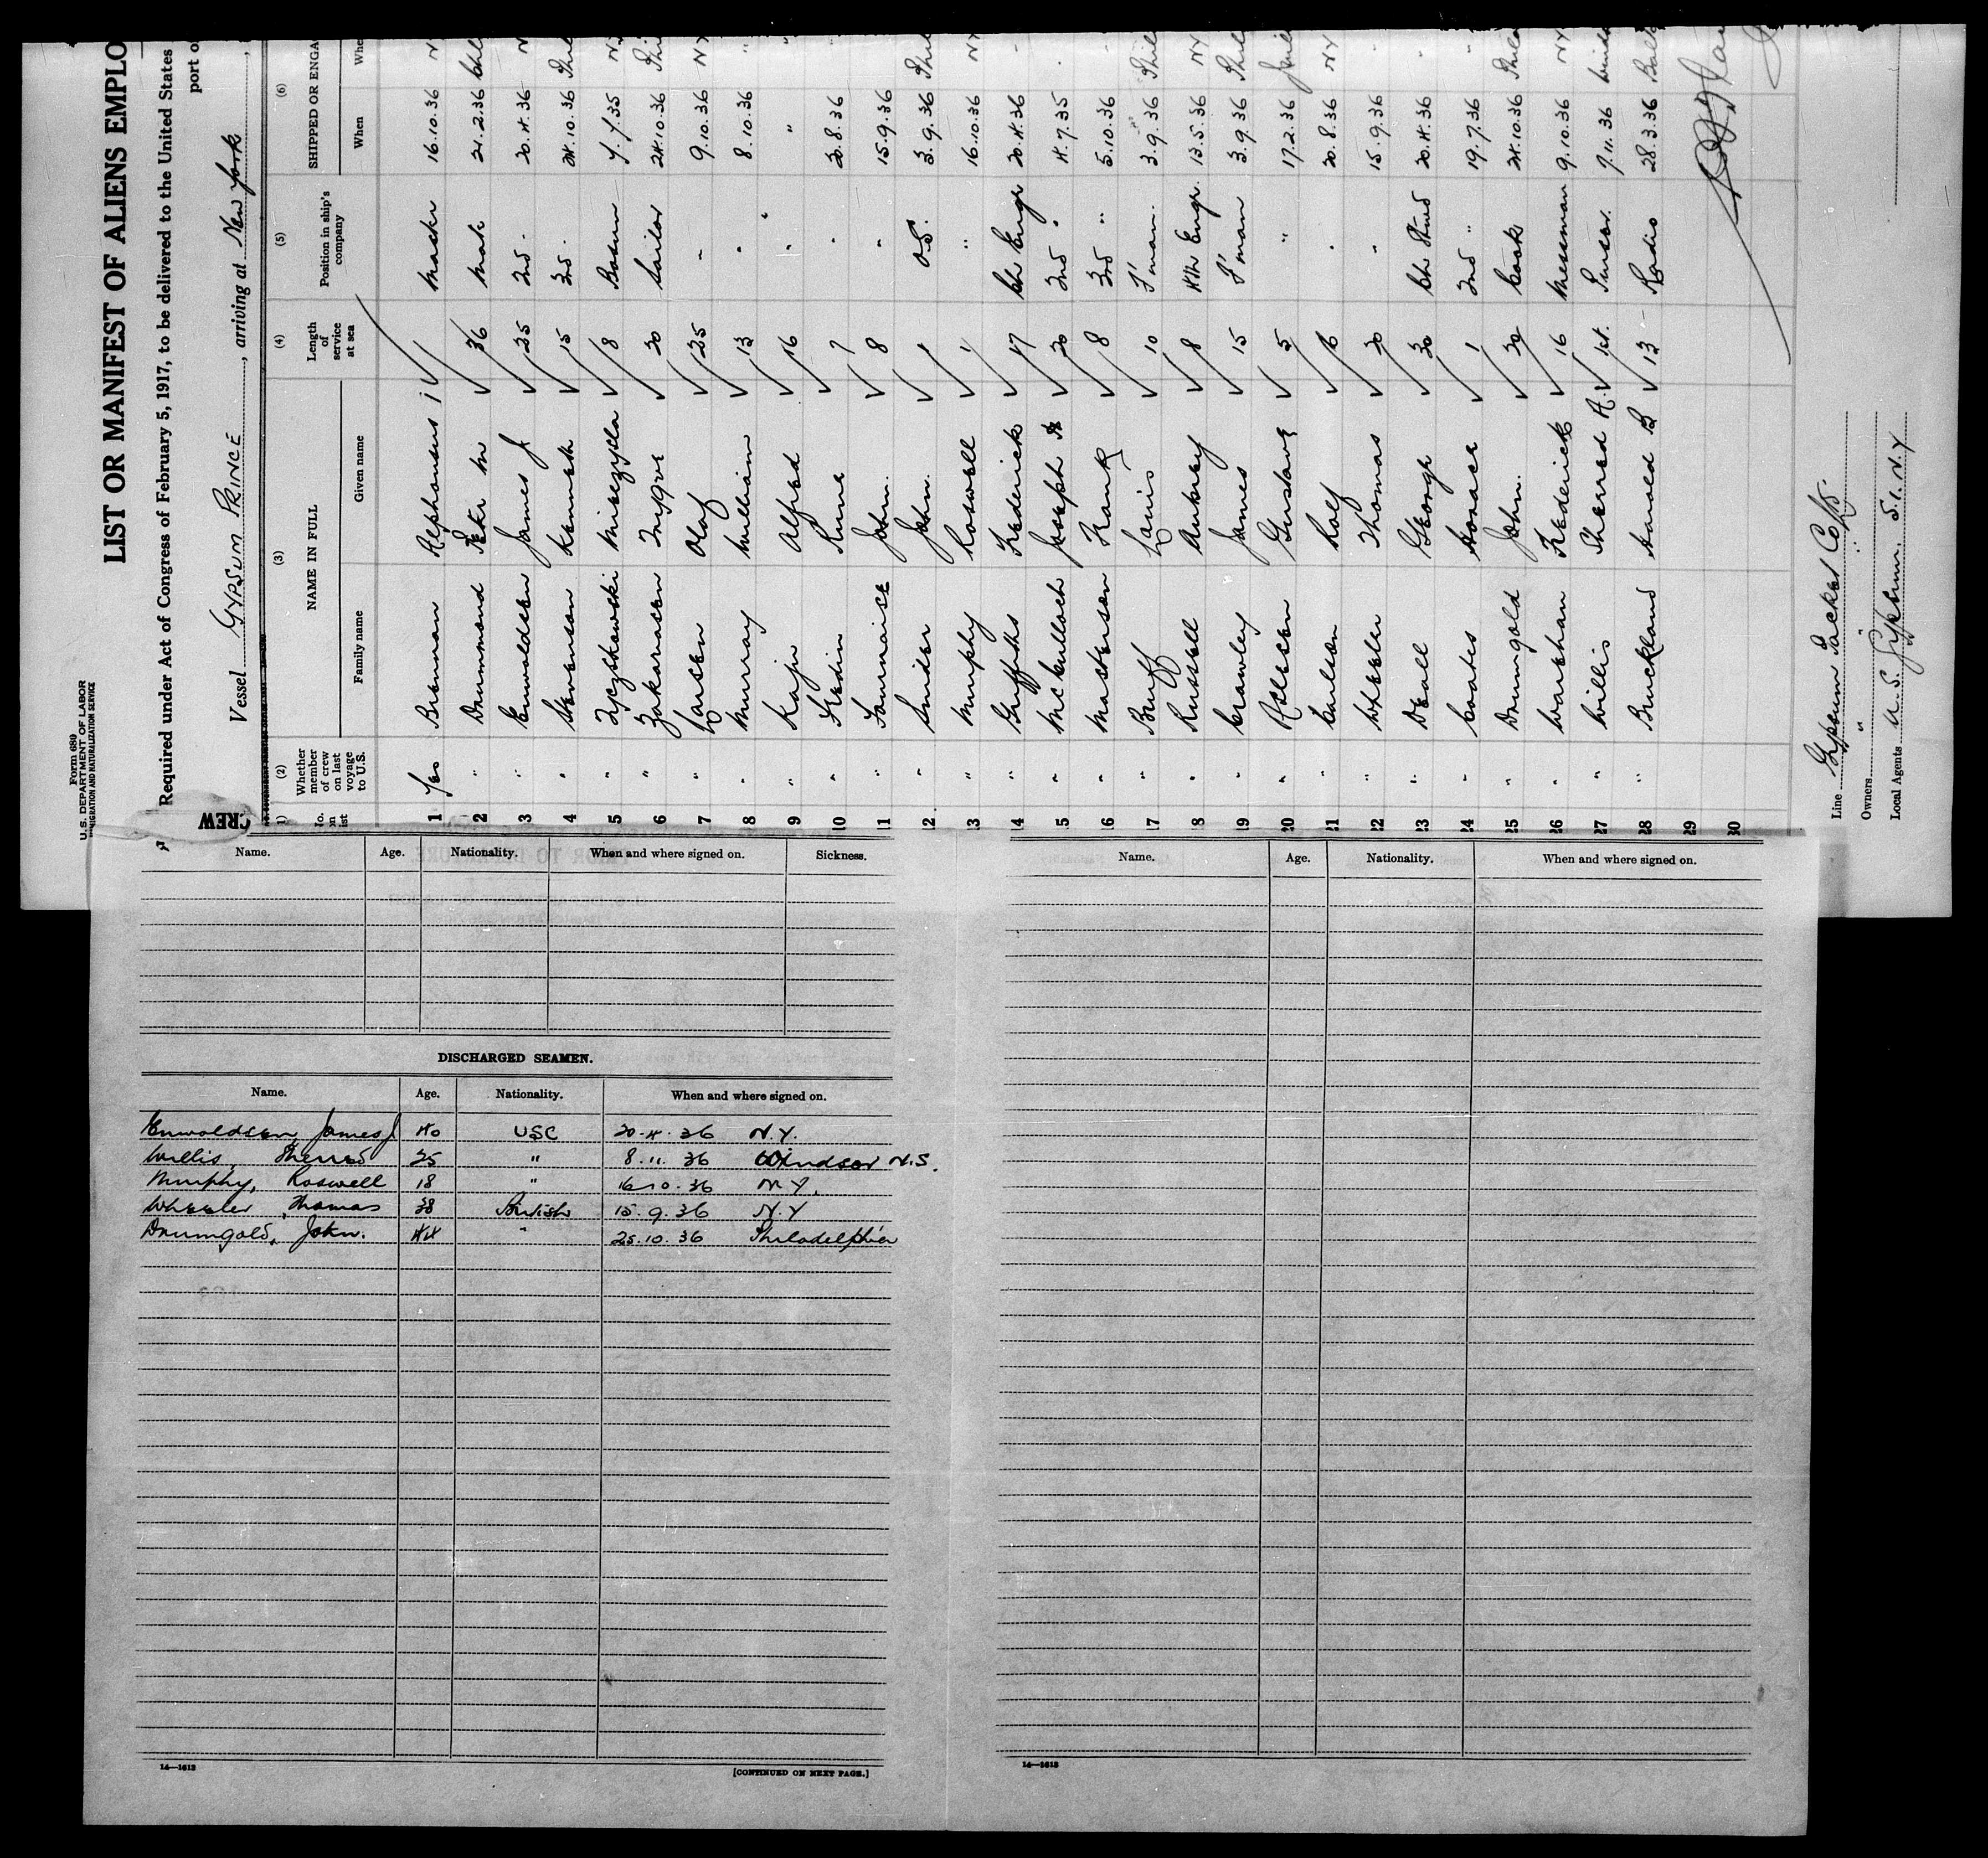 Form 689
U.S. DEPARTMENT OF LABOR
IMMIGRATION AND NATURALIZATION SERVICE
LIST OR MANIFEST OF ALIENS EMPLO
Required under Act of Congress of February 5, 1917, to be delivered to the United States
port of
Vessel GYPSUM PRINCE, arriving at New York,
CREW
(2) (3) (4) (5) (6)
Whether member of crew on last voyage to U.S. NAME IN FULL Length of service at sea Position in ship's company SHIPPED OR ENGA
Family name Given name When Whe
1 Yes Brennan Alphonsus J Master 16.10.36 NY
2 " Drummond Peter M 36 Mate 21.2.36
3 " Enwoldsen James J 25 2nd - 20.4.36 N
4 " Stevenson Kenneth 15 3rd - 24.10.36 Phil
5 " Mieczysla 8 Bosun 7.7.35 NY
6 " Zakariasen Yngve 20 Sailor 24.10.36 Phi
7 " Larsen Olaf 25 - 9.10.36 NY
8 " Murray William 13 " 8.10.36 "
9 " Kaju Alfred 16 " " "
10 " Hedin Rune 7 " 20.8.36
11 " John. 8 " 15.9.36
12 " Snider John. 1 OS. 3.9.36 Phil
13 " Murphy Roswell 1 " 16.10.36 NY
14 " Griffiths Frederick 17 Ch Engr 20.4.36 -
15 " McCulloch Joseph 20 2nd " 4.7.35 -
16 " Mastenson Frank 8 3rd " 5.10.36 -
17 " Bruff Louis 10 F'man. 3.9.36 Phil
18 " Russell Aubrey 8 4th Engr. 13.5.36 NY
19 " Crawley James 15 F'man 3.9.36 Phil
20 " Gustave 5 " 17.2.36
21 " Carlson Rolf 6 " 20.8.36 NY
22 " Wheeler Thomas 20 " 15.9.36 -
23 " Deall George 20 Ch Stwd 20.4.36 -
24 " Coates Horace 1 2nd " 19.7.36 -
25 " Drumgold John. 20 Cook 24.10.36 Phila
26 " Wareham Frederick 16 Messman 9.10.36 NY
27 " Willis Sherred A. 1st. Purser. 7.11.36 Winds
28 " Buckland Harold B 13 Radio 28.3.36 Balt
29
30
Line Gypsum Packet Co Ltd.
Owners " " "
Local Agents U.S. Gypsum. S.I. N.Y
Name. Age. Nationality. When and where signed on. Sickness.
Name. Age. Nationality. When and where signed on.
DISCHARGED SEAMEN.
Name. Age. Nationality. When and where signed on.
Enwoldsen, James J 40 USC 20.4.36 N.Y.
Willis, Sherred 25 " 8.11.36 Windsor N.S.
Murphy, Roswell 18 " 16-10.36 N.Y.
Wheeler, Thomas 38 British 15.9.36 N.Y
Drumgold, John. 44 " 25.10.36 Philadelphia
14—1613
[CONTINUED ON NEXT PAGE.]
14—1613